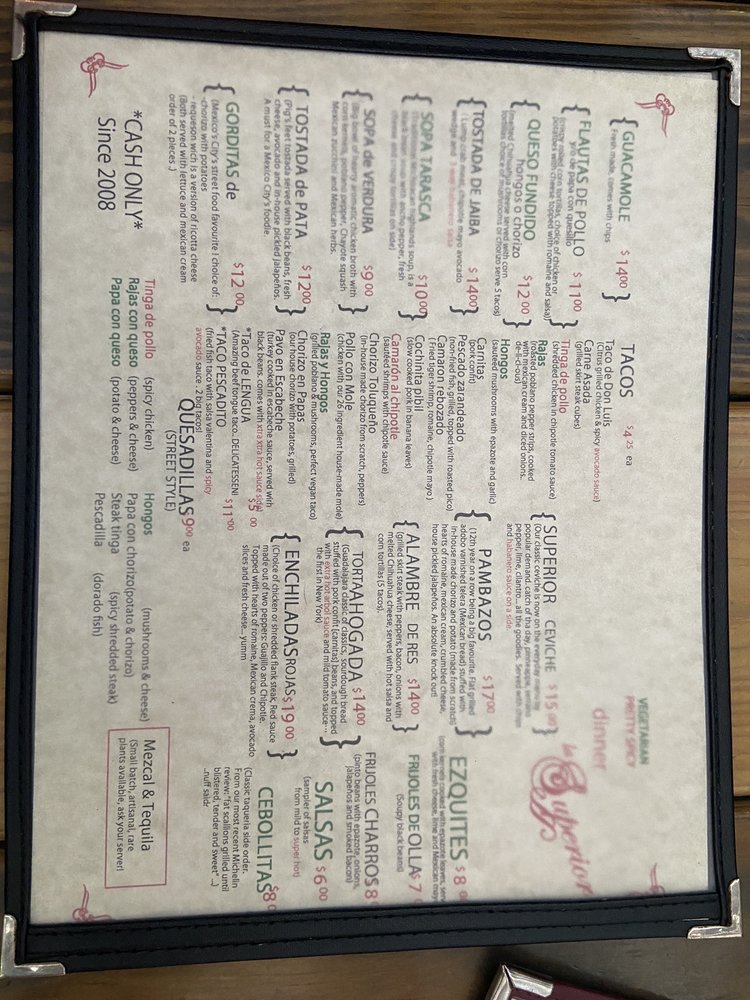 VEGETARIAN
PRETTY SPICY
dinner
la Superior
GUACAMOLE
Fresh made, comes with chips
$14 00
FLAUTAS DE POLLO $11 00
y/o de papa con quesillo
(crispy rolled corn tortillas, choice of chicken or
potatoes with cheese topped with romaine and salsa)
QUESO FUNDIDO
hongos o chorizo $12 00
(melted Chihuahua cheese served with corn
tortillas choice of mushrooms or chorizo serve 5 tacos)
TOSTADA DE JAIBA $14 00
SOPA TARASCA $10 00
SOPA de VERDURA $9 00
(Big bowl of hearty aromatic chicken broth with
corn kernels, poblano pepper, Chayote squash
Mexican zucchini and Mexican herbs.
TOSTADA de PATA $12 00
(Pig's feet tostada served with black beans, fresh
cheese, avocado and in-house pickled Jalapeños.
A must for a Mexico City's foodie.
GORDITAS de $12 00
(Mexico's City's street food favourite ! choice of:
-chorizo with potatoes
- requeson wich is a version of ricotta cheese
(Both served with lettuce and mexican cream
order of 2 pieces .)
*CASH ONLY*
Since 2008
TACOS $4 25 ea
Taco de Don Luis
(Citrus grilled chicken & spicy avocado sauce)
Carne Asada
(grilled skirt steak cubes)
Tinga de pollo
(shredded chicken in chipotle tomato sauce)
Rajas
(roasted poblano pepper strips, cooked
with mexican cream and diced onions:
de-li-ci-ous)
Hongos
(sauteéd mushrooms with epazote and garlic)
Carnitas
(pork confit)
Pescado zarandeado
(non-fried fish, grilled, topped with roasted pico)
Camaron rebozado
( Fried tiger shrimp, romaine, chipotle mayo )
Cochinita pibil
(slow cooked pork in banana leaves)
Camarón al chipotle
(sautéed shrimps with chipotle sauce)
Chorizo Toluqueño
(In-house made chorizo from scratch, peppers)
Pollo con Mole
(chicken with our 26 ingredient house-made mole)
Rajas y Hongos
(grilled poblano & mushrooms, perfect vegan taco)
Chorizo en Papas
(our house chorizo with potatoes, grilled)
Pavo en Escabeche
(turkey cooked in escabeche sauce, served with
black beans, comes with xtra xtra hot sauce side)
*Taco de LENGUA $5 00
(Amazing beef tongue taco.. DELICATESSEN!
*TACO PESCADITO $11 00
(fried fish taco with salsa valentina and spicy
avocado sauce . 2 large tacos)
QUESADILLAS 9 00 ea
(STREET STYLE)
Tinga de pollo (spicy chicken)
Rajas con queso (peppers & cheese)
Papa con queso (potato & cheese)
Hongos (mushrooms & cheese)
Papa con chorizo (potato & chorizo)
Steak tinga (spicy shredded steak)
Pescadilla (dorado fish)
SUPERIOR CEVICHE $15 00
(Our classic ceviche is now on the everyday menu by
popular demand, catch of tha day, pineapple, serrano
pepper, lime, cilantro...all the goodies. Served with chips
and habanero sauce on a side.
PAMBAZOS $17 00
(12th year on a row being a big favourite. Flat grilled
adobo varnished telera (Mexican bread) stuffed with
in-house made chorizo and potato (made from scratch)
hearts of romaine, mexican cream, crumbled cheese,
house pickled jalapeños. An absolute knock out!
ALAMBRE DE RES $14 00
(grilled skirt steak with peppers, bacon, onions with
melted Chihuahua cheese, served with hot salsa and
corn tortillas (5 tacos).
TORTA AHOGADA $14 00
(Guadalajara classic of classics, sourdough bread
stuffed with pork confit (carnitas) beans, and topped
with extra hot arbol sauce and mild tomato sauce...
the first in New York)
ENCHILADAS ROJAS $19 00
(Choice of chicken or shredded flank steak, Red sauce
made out of two peppers: Guajillo and Chipotle.
Topped with hearts of romaine, Mexican crema, avocado
slices and fresh cheese...yumm
EZQUITES $8
(corn kernels cooked with epazote leaves, serv
with fresh cheese, lime and Mexican may
FRIJOLES DE OLLA $7
(Soupy black beans)
FRIJOLES CHARROS 8
(pinto beans with epazote, onions,
jalapeños and smoked bacon)
SALSAS $6 00
(sampler of salsas
from mild to super hot)
CEBOLLITAS $8
(Classic taqueria side order.
From our most recent Michelin
review: "fat scallions grilled until
blistered, tender and sweet"...)
..nuff said:
Mezcal & Tequila
(Small batch, artisanal, rare
plants available, ask your server!